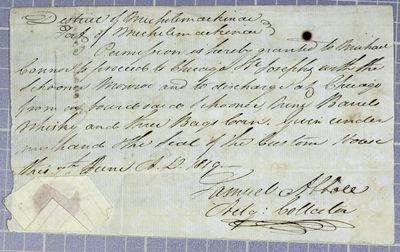 District of Michilimackinac
Port of Michilimackinac
Permission is hereby granted to Michael
Connor to proceed to Chicago & St Josephs with the
Schooner Monroe and to discharge at Chicago
from on board said Schooner, Nine Barrels
Whisky and three Bags Corn. Given under
my hand & the seal of the Custom House
this 7th June A. D. 1819.
Samuel Abbott
Collector